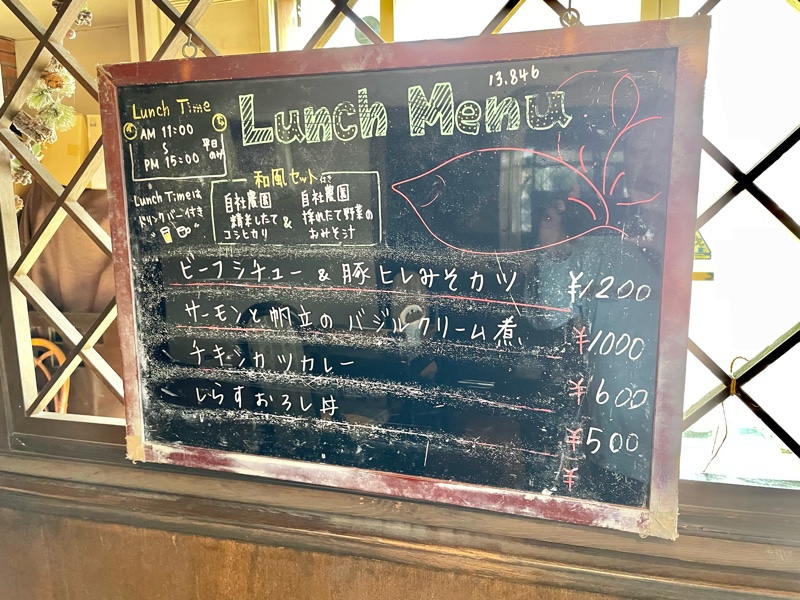 13.846
Lunch Menu
Lunch Time
AM 11:00
平日のみ
PM 15:00
Lunch Timeは
ドリンクバー付き
和風セット付き
自社農園
精米したて
コシヒカリ
&
自社農園
採れたて野菜の
おみそ汁
ビーフシチュー & 豚ヒレみそカツ ¥1200
サーモンと帆立のバジルクリーム煮 ¥1000
チキンカツカレー ¥600
しらすおろし丼 ¥500
¥